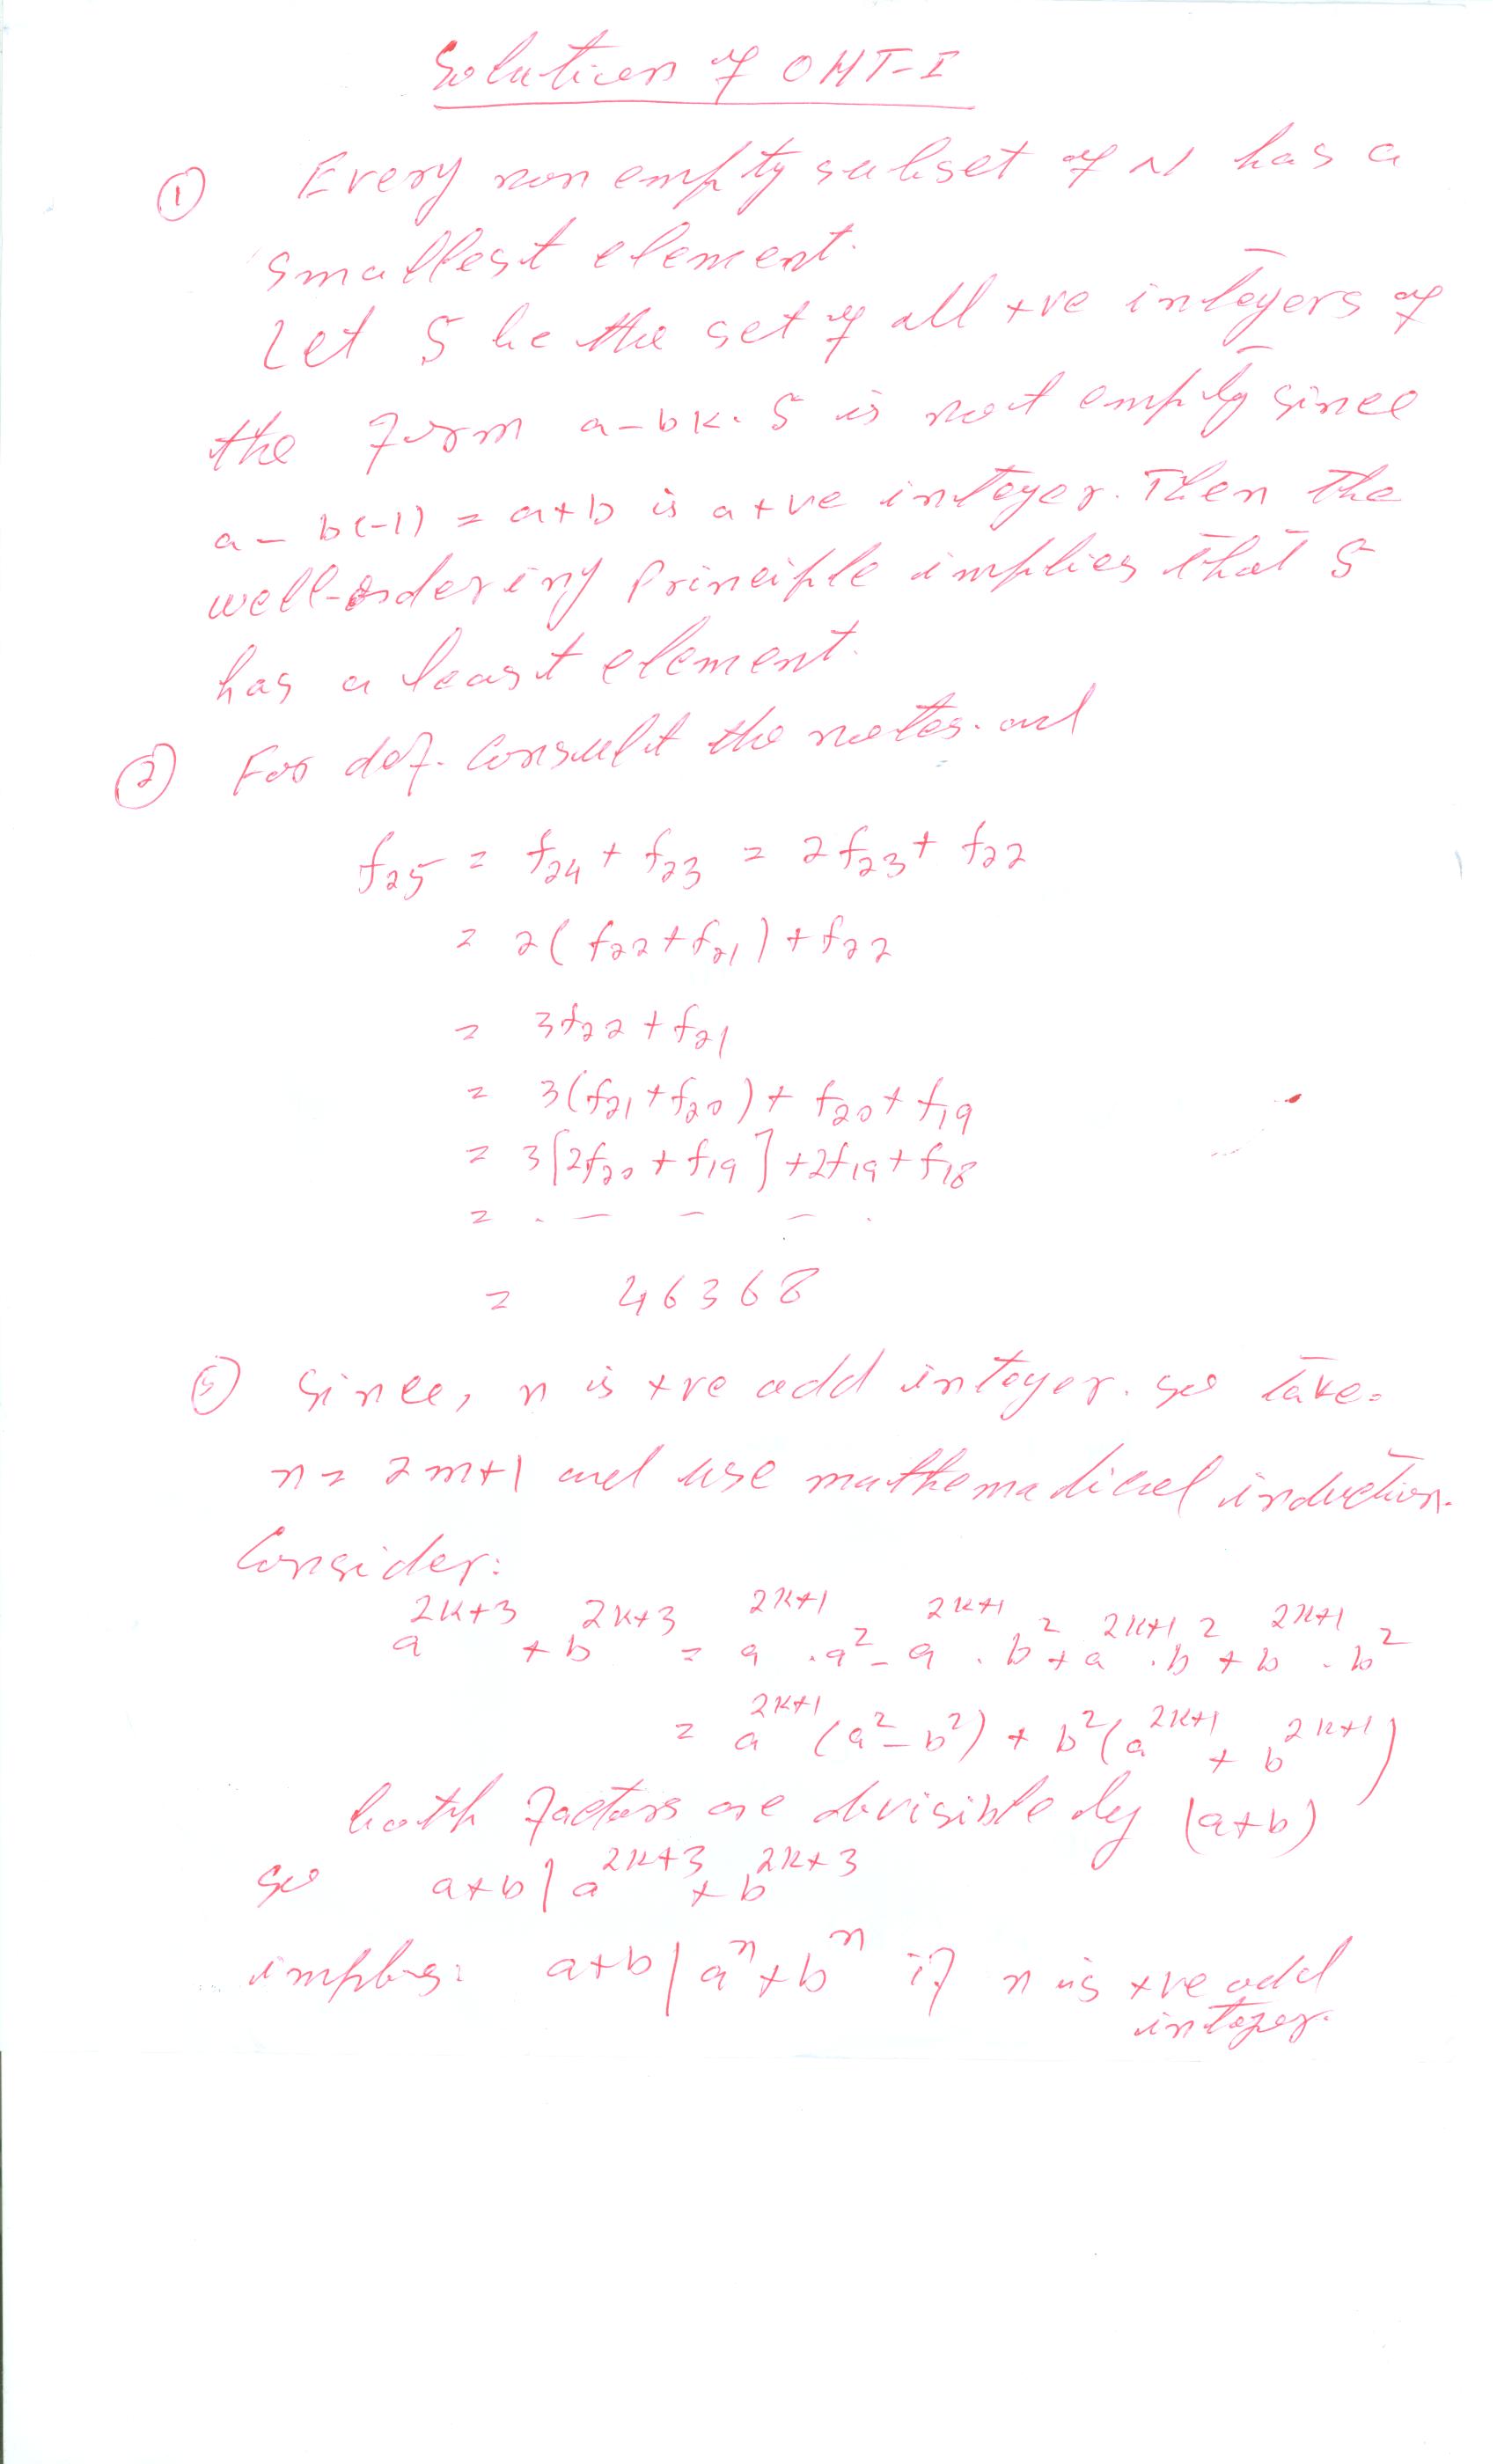 Solution of OHT-I
① Every non empty subset of N has a
smallest element.
Let S be the set of all +ve integers of
the form a-bk. S is not empty since
a-b(-1) = a+b is a +ve integer. Then the
well-ordering principle implies that S
has a least element.
② For def. consult the notes. and
f₂₅ = f₂₄ + f₂₃ = 2f₂₃ + f₂₂
= 2(f₂₂+f₂₁) + f₂₂
= 3f₂₂ + f₂₁
= 3(f₂₁+f₂₀) + f₂₀ + f₁₉
= 3[2f₂₀ + f₁₉] + 2f₁₉ + f₁₈
= . - - - .
= 46368
Since, n is +ve odd integer. So take.
n = 2m+1 and use mathematical induction.
Consider:
a^{2k+3} + b^{2k+3} = a^{2k+1}.a² - a^{2k+1}.b² + a^{2k+1}.b² + b^{2k+1}.b²
= a^{2k+1}(a²-b²) + b²(a^{2k+1} + b^{2k+1})
both factors are divisible by (a+b)
so a+b | a^{2k+3} + b^{2k+3}
implies: a+b | aⁿ+bⁿ if n is +ve odd
integer.